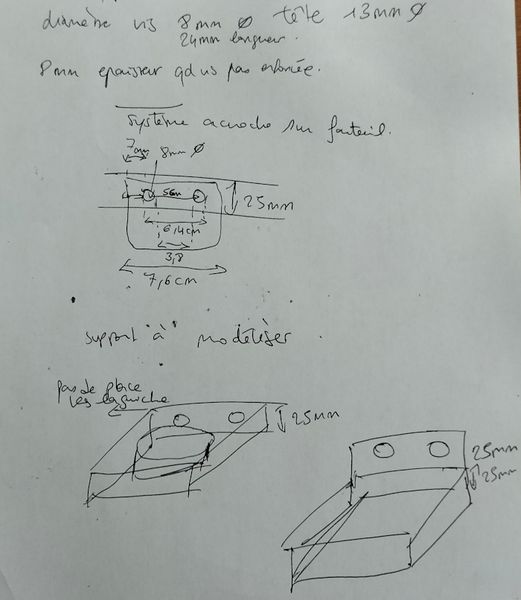 diamètre vis 8mm Ø tête 13mm Ø
24mm longueur.
8mm epaisseur qd vis pas enfoncée.
système accroche sur fauteuil.
7mm 8mm Ø
5cm
25mm
6,4cm
3,8
7,6cm
support "à" modéliser
pas de place
vers la gauche
25mm
25mm
25mm